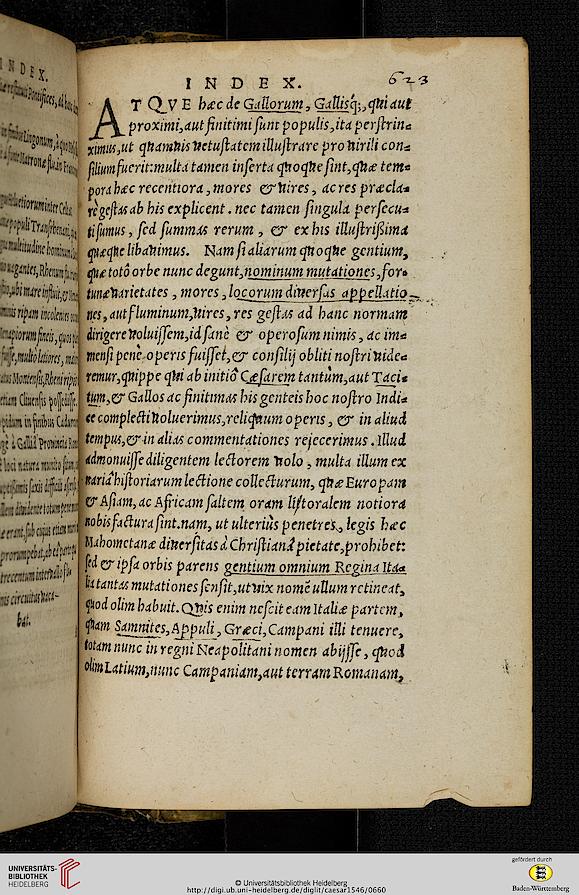 INDEX.
INDEX. 623
ATQVE hæc de Gallorum, Gallisq́;, qui aut
proximi, aut finitimi sunt populis, ita perstrin=
ximus, ut quamuis uetustatem illustrare pro uirili con=
silium fuerit: multa tamen inserta quoque sint, quæ tem=
pora hæc recentiora, mores & uires, ac res præcla=
rè gestas ab his explicent. nec tamen singula persecu=
ti sumus, sed summas rerum, & ex his illustrißima
quæque libauimus. Nam si aliarum quoque gentium,
quæ totô orbe nunc degunt, nominum mutationes, for=
tunæ uarietates, mores, locorum diuersas appellatio=
nes, aut fluminum, uires, res gestas ad hanc normam
dirigere uoluissem, id sanè & operosum nimis, ac im=
mensi penè operis fuisset, & consilij obliti nostri uide=
remur, quippe qui ab initiô Cæsarem tantùm, aut Taci=
tum, & Gallos ac finitimas his genteis hoc nostro Indi=
ce complecti uoluerimus, reliquum operis, & in aliud
tempus, & in alias commentationes reiecerimus. Illud
admonuisse diligentem lectorem uolo, multa illum ex
uariâ historiarum lectione collecturum, quæ Europam
& Asiam, ac Africam saltem oram littoralem notiora
nobis factura sint. nam, ut ulterius penetres, legis hæc
Mahometanæ diuersitas à Christianâ pietate, prohibet:
sed & ipsa orbis parens gentium omnium Regina Ita=
lia tantas mutationes sensit, ut uix nomẽ ullum retineat,
quod olim habuit. Quis enim nescit eam Italiæ partem,
quam Samnites, Appuli, Græci, Campani illi tenuere,
totam nunc in regni Neapolitani nomen abijsse, quod
olim Latium, nunc Campaniam, aut terram Romanam,
UNIVERSITÄTS-
BIBLIOTHEK
HEIDELBERG
© Universitätsbibliothek Heidelberg
http://digi.ub.uni-heidelberg.de/diglit/caesar1546/0660
gefördert durch
Baden-Württemberg